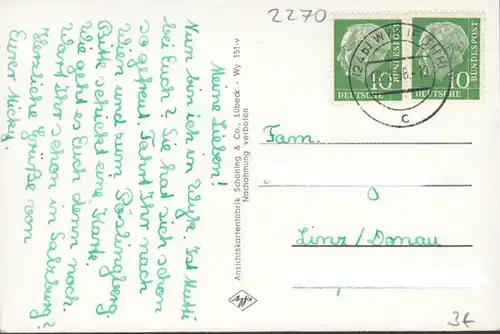 2270
DEUTSCHE BUNDESPOST
10
DEUTSCHE BUNDESPOST
10
(24b) W
c
Meine Lieben!
Nun bin ich in Wyk. Ist Mutti
bei Euch? Sie hat sich schon
so gefreut. Fahrt Ihr nach
Wien und zum Pöslingberg.
Bitte schickt eine Karte.
Wie geht es Euch denn noch.
Wart Ihr schon in Salzburg?
Herzliche Grüße von
Eurer Micky.
Ansichtskartenfabrik Schöning & Co., Lübeck · Wy 151-v
Nachahmung verboten
Agfa
Fam.
Linz/Donau
3€